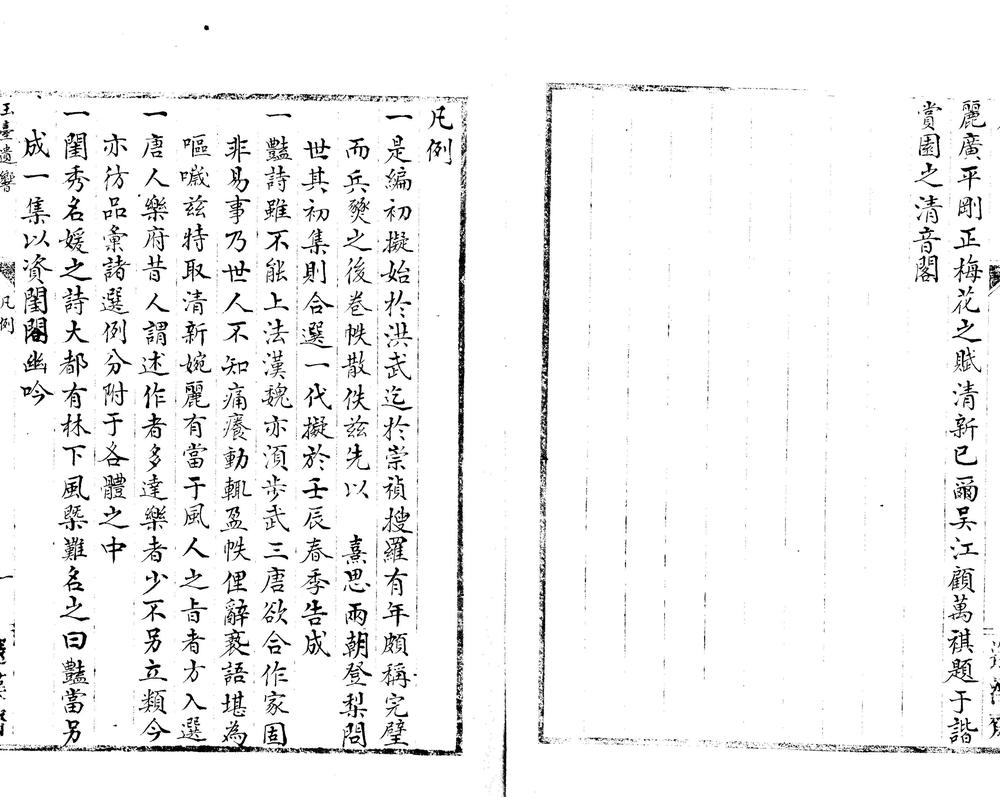 麗廣平剛正梅花之賦清新已爾吳江顧萬祺題于諧
賞園之清音閣
凡例
一是編初擬始於洪武迄於崇禎搜羅有年頗稱完璧
而兵燹之後卷帙散佚茲先以　熹思兩朝登梨問
世其初集則合選一代擬於壬辰春季告成
一豔詩雖不能上法漢魏亦須步武三唐欲合作家固
非易事乃世人不知痛癢動輒盈帙俚辭褻語堪為
嘔噦茲特取清新婉麗有當于風人之旨者方入選
一唐人樂府昔人謂述作者多達樂者少不另立類今
亦彷品彙諸選例分附于各體之中
一閨秀名媛之詩大都有林下風槩難名之曰豔當另
成一集以資閨閣幽吟
玉臺遺響
凡例
一